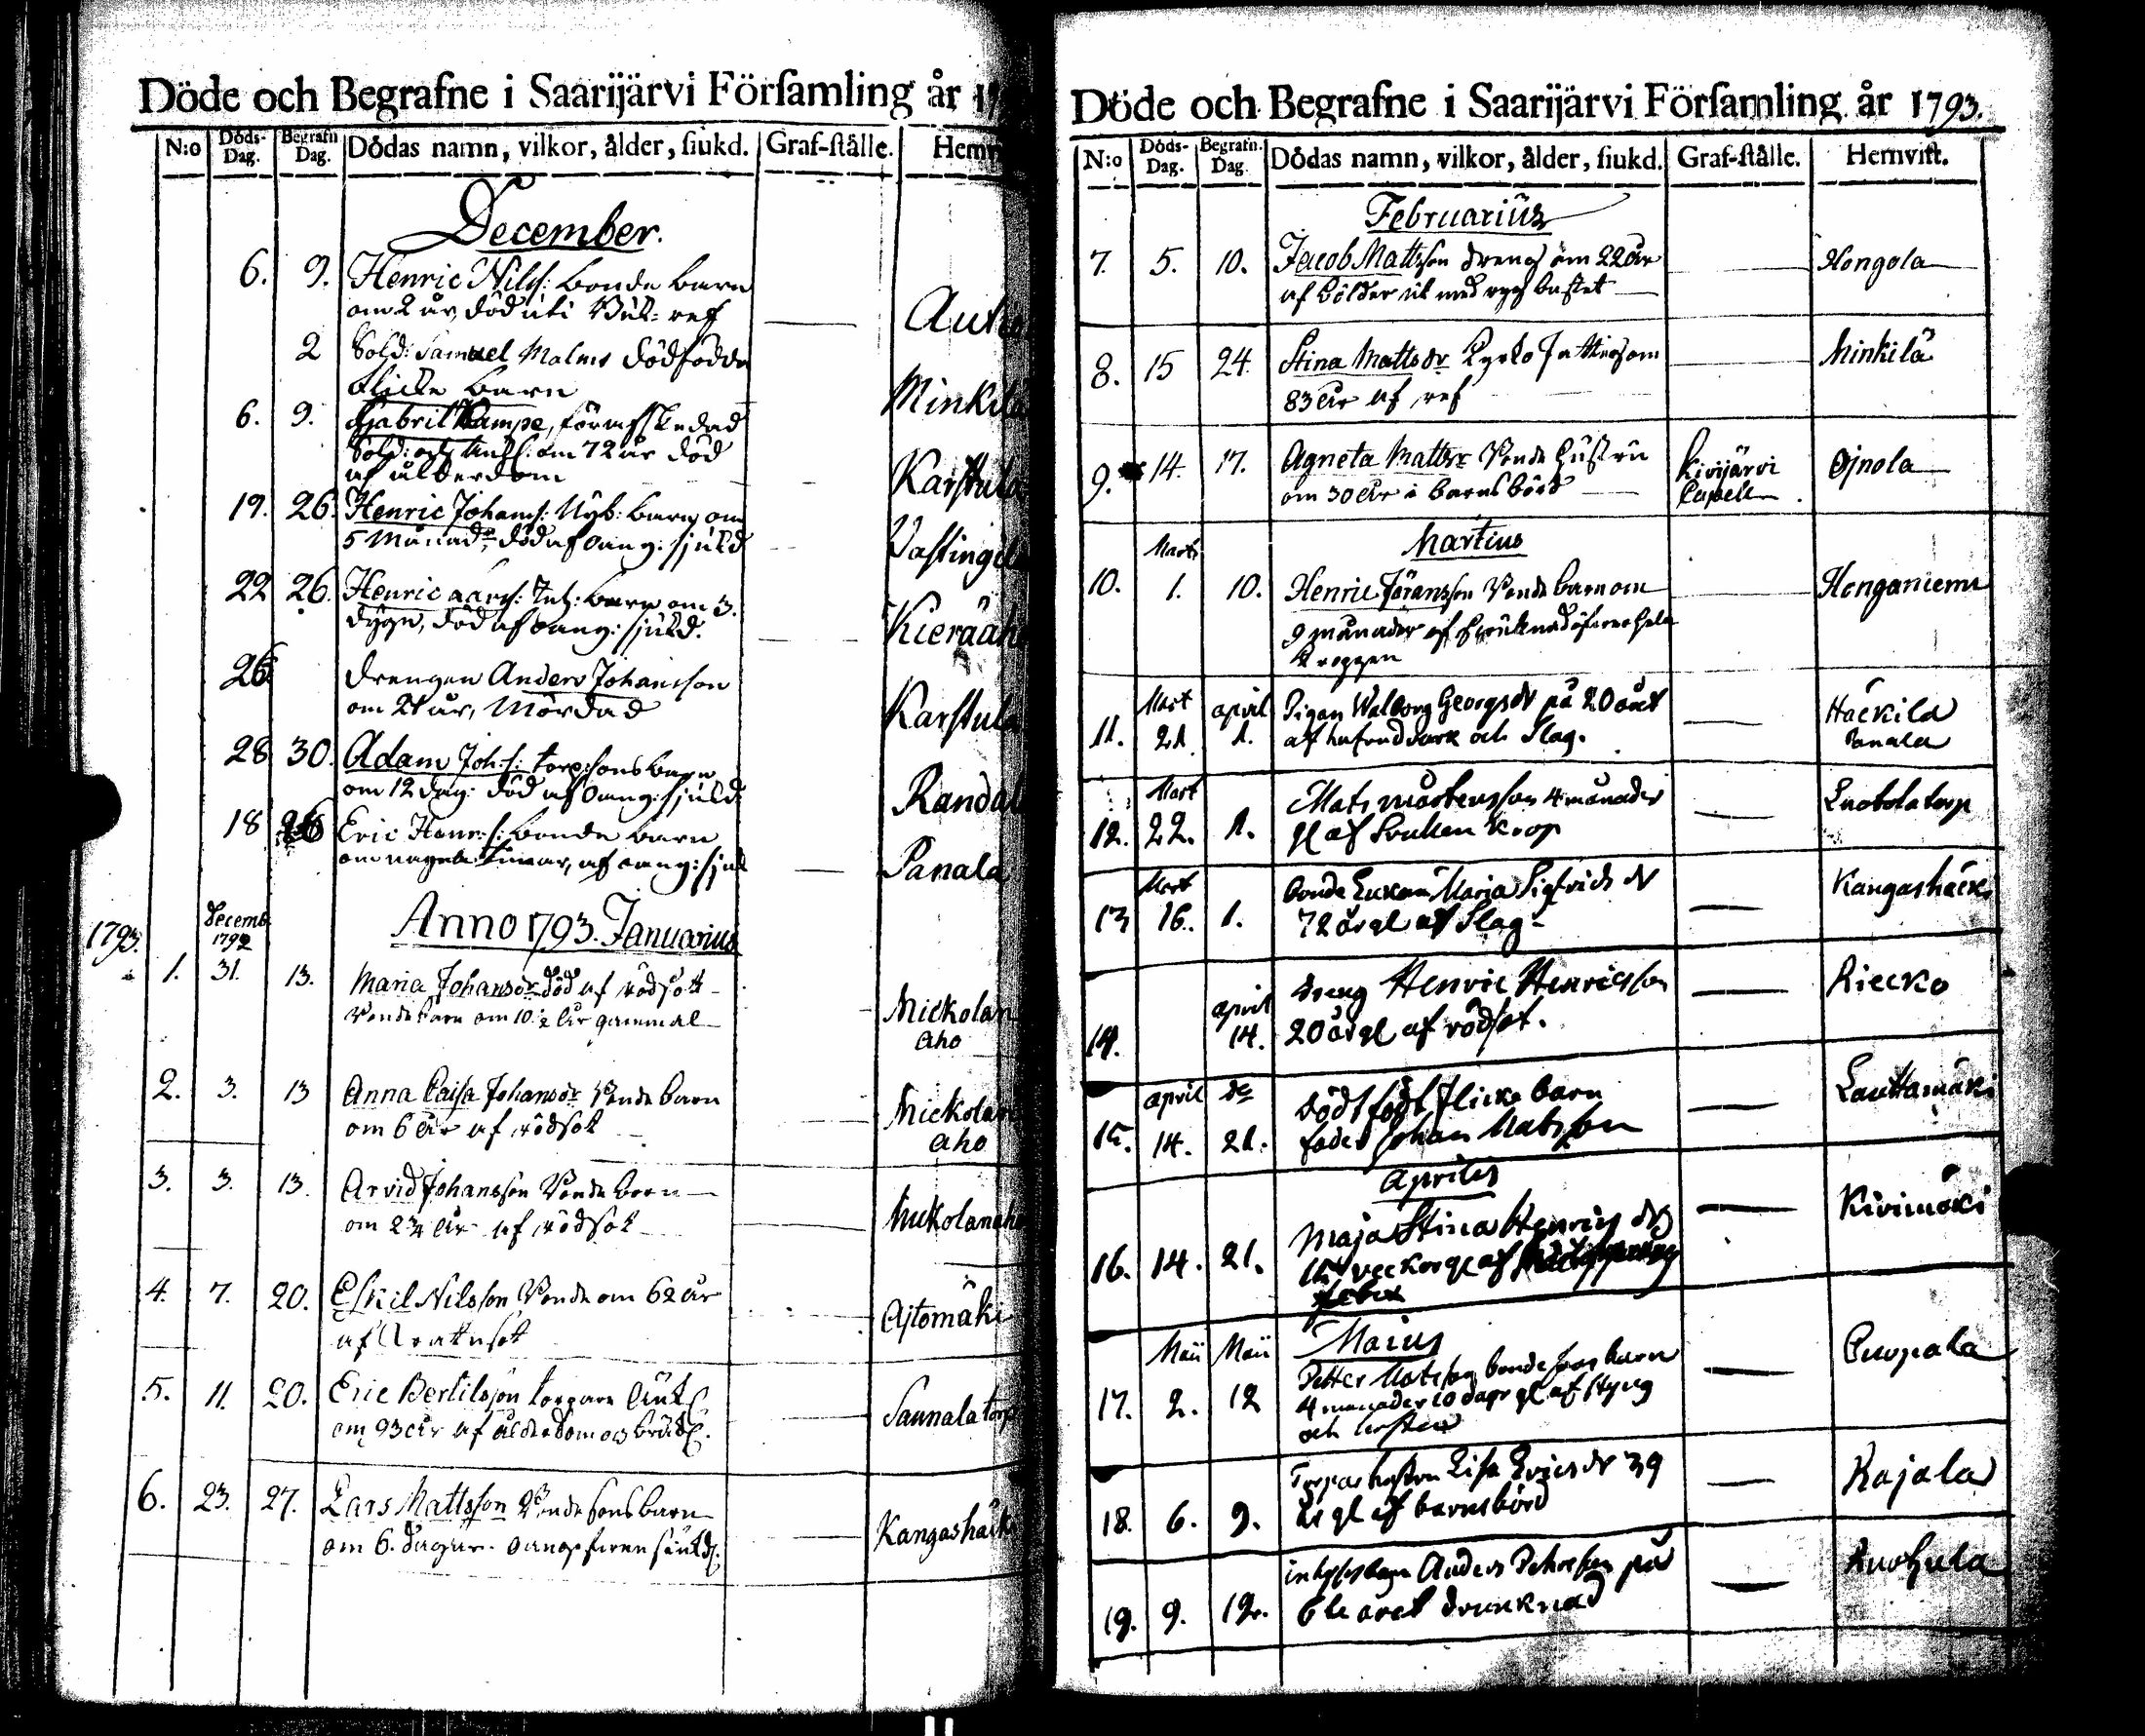 Döde och Begrafne i Saarijärvi Församling år 17
N:o Döds-Dag. Begrafn Dag. Dödas namn, vilkor, ålder, siukd. Graf-ställe. Hemv
December.
6. 9. Henric Nilss: bonde barn
om 2 år, död uti ref Auho
2 Sold: Samuel Malms dödfödda
flicke barn Minkilä
6. 9. Gabriel Kampe, förafskedad
Sold: och om 72 år död
af ålderdom Karstula
19. 26. Henric Johans: Nyb: barn om
5 Månad:, död af oang: sjukd Vastinge
22 26. Henric Lars: Inh: barn om 3.
dygn, död af oang: sjukd. Kieräah
26 drengen Anders Johansson
om 21 år, Mördad Karstula
28 30. Adam Joh:s: torp:sons barn
om 12 dag: död af oang: sjukd Randal
18 26 Eric Henr:s: bonde barn
om några timar, af oang: sjuk Panala
1793. Decemb. 1792 Anno 1793. Januarius
1. 31. 13. Maria Johansdr död af rödsot
Bonde barn om 10 1/2 år gammal Mickolan
aho
2. 3. 13 Anna Caisa Johansdr Bonde barn
om 6 år af rödsot Mickolan
aho
3. 3. 13. Arvid Johansson Bonde barn
om 2 3/4 år af rödsot Mickolanaho
4. 7. 20. Eskil Nilsson Bonde om 62 år
af Äjtomäki
5. 11. 20. Eric Bertilsson torpare
om 93 år af ålderdoms bräckl. Saunala torp
6. 23. 27. Lars Mattsson Bonde sons barn
om 6. dagar. oangifven siukd. Kangashäk
Döde och Begrafne i Saarijärvi Församling år 1793.
N:o Döds-Dag. Begrafn. Dag Dödas namn, vilkor, ålder, siukd. Graf-ställe. Hemvist.
Februarius
7. 5. 10. Jacob Mattsson dreng om 22 år
af bölder Hongola
8. 15 24. Stina Mattsdr Kyrko om
83 år af ref Minkilä
9. 14. 17. Agneta Mattsdr Bonde hustru
om 30 år i barnsbörd Kivijärvi
Capell Ojnola
Martius
10. Marti 1. 10. Henric Jöransson Bonde barn om
9 månader af öfver hela
kroppen Honganiemi
11. Mart 21. april 1. Pigan Walborg Georgsdr på 20 året
af hufvudvärk och Slag. Häckilä
Panala
12. Mart 22. 1. Mats Mårtensson 4 månader
gl af Svullen krop torp
13 Mart 16. 1. bonde Enkan Maria Sigfrids dr
72 år gl af Slag Kangashäcki
14. april 14. dreng Henric Henricsson
20 år gl af rödsot. Riecko
15. april 14. de 21. dödt födt flicke barn
fader Johan Matsson Lauttamäki
Aprilis
16. 14. 21. Maja Stina Henrics dr
veckor gl af Kivimäki
Maius
17. Maii 2. Maii 12 Petter Matsson bonde sons barn
4 månader 10 dagr gl af styng
och hosta Puopala
18. 6. 9. Torpar hustru Lisa Erics dr 39
år gl af barnsbörd Kajala
19. 9. 12. inhyses Anders Petersson på
6te året drunknad Ruohula